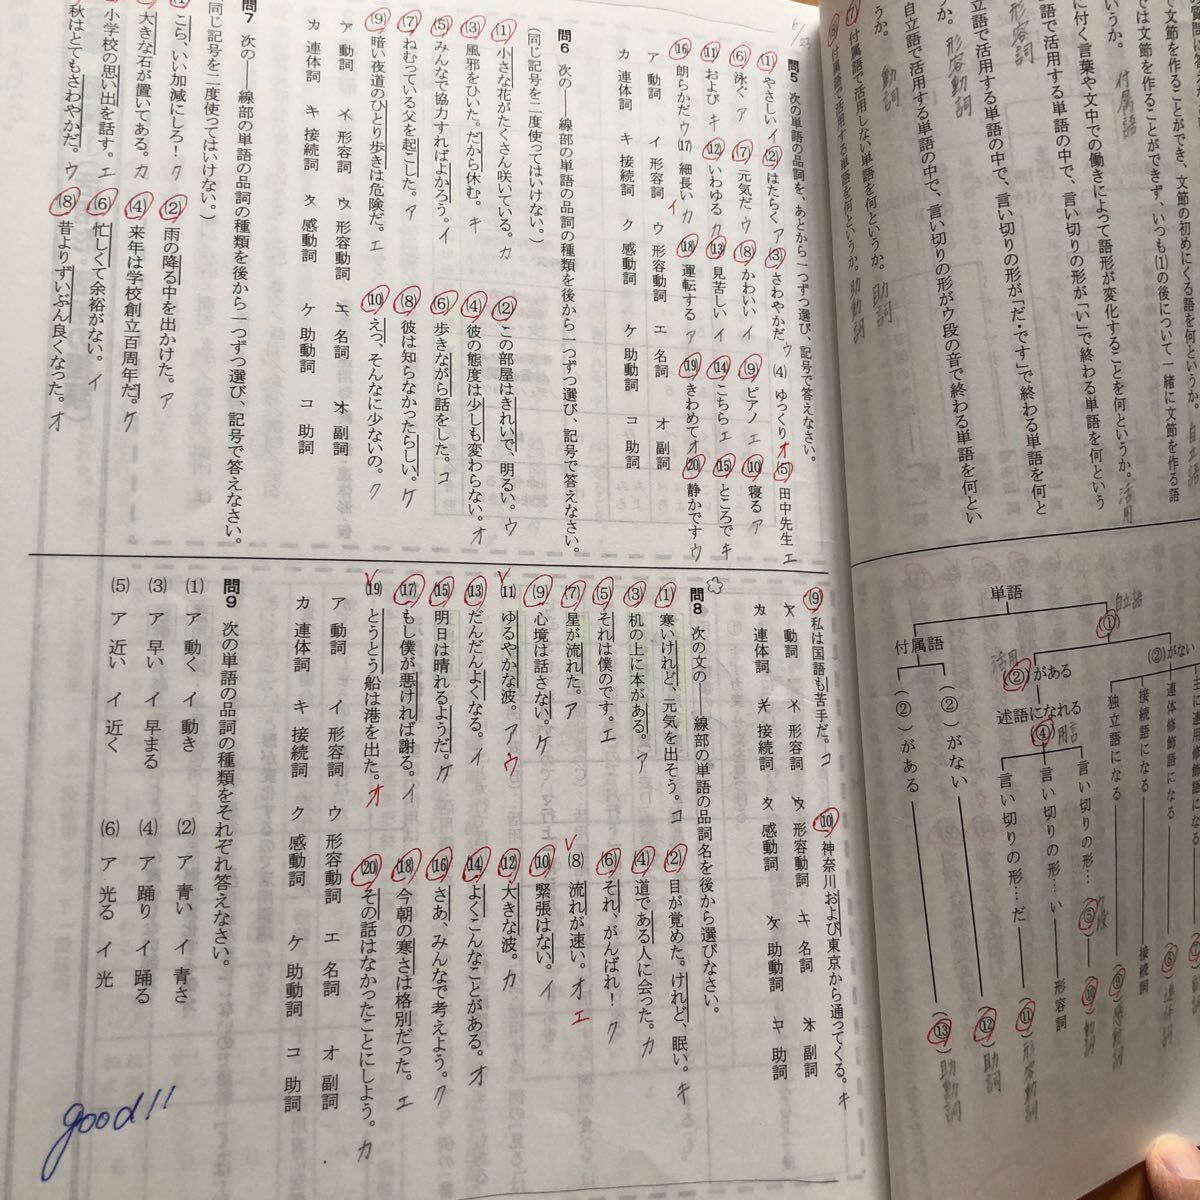 で文節を作ることができず、いつも⑴の後について一緒に文節を作る語
に付く言葉や文中での働きによって語形が変化することを何というか。活用
で活用する単語の中で、言い切りの形が「い」で終わる単語を何という
形容詞
で活用する単語の中で、言い切りの形が「だ・です」で終わる単語を何と
うか。形容動詞
自立語で活用する単語の中で、言い切りの形がウ段の音で終わる単語を何とい
うか。動詞
⑺ 付属語で活用しない単語を何というか。助詞
⑻ 付属語で活用する単語を何というか。助動詞
単語
自立語
①
付属語
活用
(②)がある
(②)がない
述語になれる
④ 用言
連体修飾語になる
接続語になる
独立語になる
言い切りの形…⑤
言い切りの形…い
言い切りの形…だ
(②)がない
(②)がある
⑧ 連体詞
接続詞
⑨ 感動詞
⑩ 動詞
形容詞
⑪ 形容動詞
⑫ 助詞
⑬ 助動詞
問5 次の単語の品詞を、あとから一つずつ選び、記号で答えなさい。
⑴ やさしい イ
⑵ はたらく ア
⑶ さわやかだ ウ
⑷ ゆっくり オ
⑸ 田中先生 エ
⑹ 泳ぐ ア
⑺ 元気だ ウ
⑻ かわいい イ
⑼ ピアノ エ
⑽ 寝る ア
⑾ および キ
⑿ いわゆる カ
⒀ 見苦しい イ
⒁ こちら エ
⒂ ところで キ
⒃ 朗らかだ ウ
⒄ 細長い カ イ
⒅ 運転する ア
⒆ きわめて オ
⒇ 静かです ウ
ア 動詞 イ 形容詞 ウ 形容動詞 エ 名詞 オ 副詞
カ 連体詞 キ 接続詞 ク 感動詞 ケ 助動詞 コ 助詞
問6 次の──線部の単語の品詞の種類を後から一つずつ選び、記号で答えなさい。
(同じ記号を二度使ってはいけない。)
⑴ 小さな花がたくさん咲いている。カ
⑵ この部屋はきれいで、明るい。ウ
⑶ 風邪をひいた。だから休む。キ
⑷ 彼の態度は少しも変わらない。オ
⑸ みんなで協力すればよかろう。イ
⑹ 歩きながら話をした。コ
⑺ ねむっている父を起こした。ア
⑻ 彼は知らなかったらしい。ケ
⑼ 暗い夜道のひとり歩きは危険だ。エ
⑽ えっ、そんなに少ないの。ク
ア 動詞 イ 形容詞 ウ 形容動詞 エ 名詞 オ 副詞
カ 連体詞 キ 接続詞 ク 感動詞 ケ 助動詞 コ 助詞
問7 次の──線部の単語の品詞の種類を後から一つずつ選び、記号で答えなさい。
(同じ記号を二度使ってはいけない。)
こら、いい加減にしろ! ク
⑵ 雨の降る中を出かけた。ア
大きな石が置いてある。カ
⑷ 来年は学校創立百周年だ。ケ
小学校の思い出を話す。エ
⑹ 忙しくて余裕がない。イ
秋はとてもさわやかだ。ウ
⑻ 昔よりずいぶん良くなった。オ
⑼ 私は国語も苦手だ。コ
⑽ 神奈川および東京から通ってくる。キ
ア 動詞 イ 形容詞 ウ 形容動詞 エ 名詞 オ 副詞
カ 連体詞 キ 接続詞 ク 感動詞 ケ 助動詞 コ 助詞
問8 次の文の──線部の単語の品詞名を後から選びなさい。
⑴ 寒いけれど、元気を出そう。コ
⑵ 目が覚めた。けれど、眠い。キ
⑶ 机の上に本がある。ア
⑷ 道である人に会った。カ
⑸ それは僕のです。エ
⑹ それ、がんばれ! ク
⑺ 星が流れた。ア
⑻ 流れが速い。オ エ
⑼ 心境は話さない。ケ
⑽ 緊張はない。イ
⑾ ゆるやかな波。ア ウ
⑿ 大きな波。カ
⒀ だんだんよくなる。イ
⒁ よくこんなことがある。オ
⒂ 明日は晴れるようだ。ケ
⒃ さあ、みんなで考えよう。ク
⒄ もし僕が悪ければ謝る。イ
⒅ 今朝の寒さは格別だった。エ
⒆ とうとう船は港を出た。オ
⒇ その話はなかったことにしよう。カ
ア 動詞 イ 形容詞 ウ 形容動詞 エ 名詞 オ 副詞
カ 連体詞 キ 接続詞 ク 感動詞 ケ 助動詞 コ 助詞
問9 次の単語の品詞の種類をそれぞれ答えなさい。
⑴ ア 動く イ 動き
⑵ ア 青い イ 青さ
⑶ ア 早い イ 早まる
⑷ ア 踊り イ 踊る
⑸ ア 近い イ 近く
⑹ ア 光る イ 光
good!!